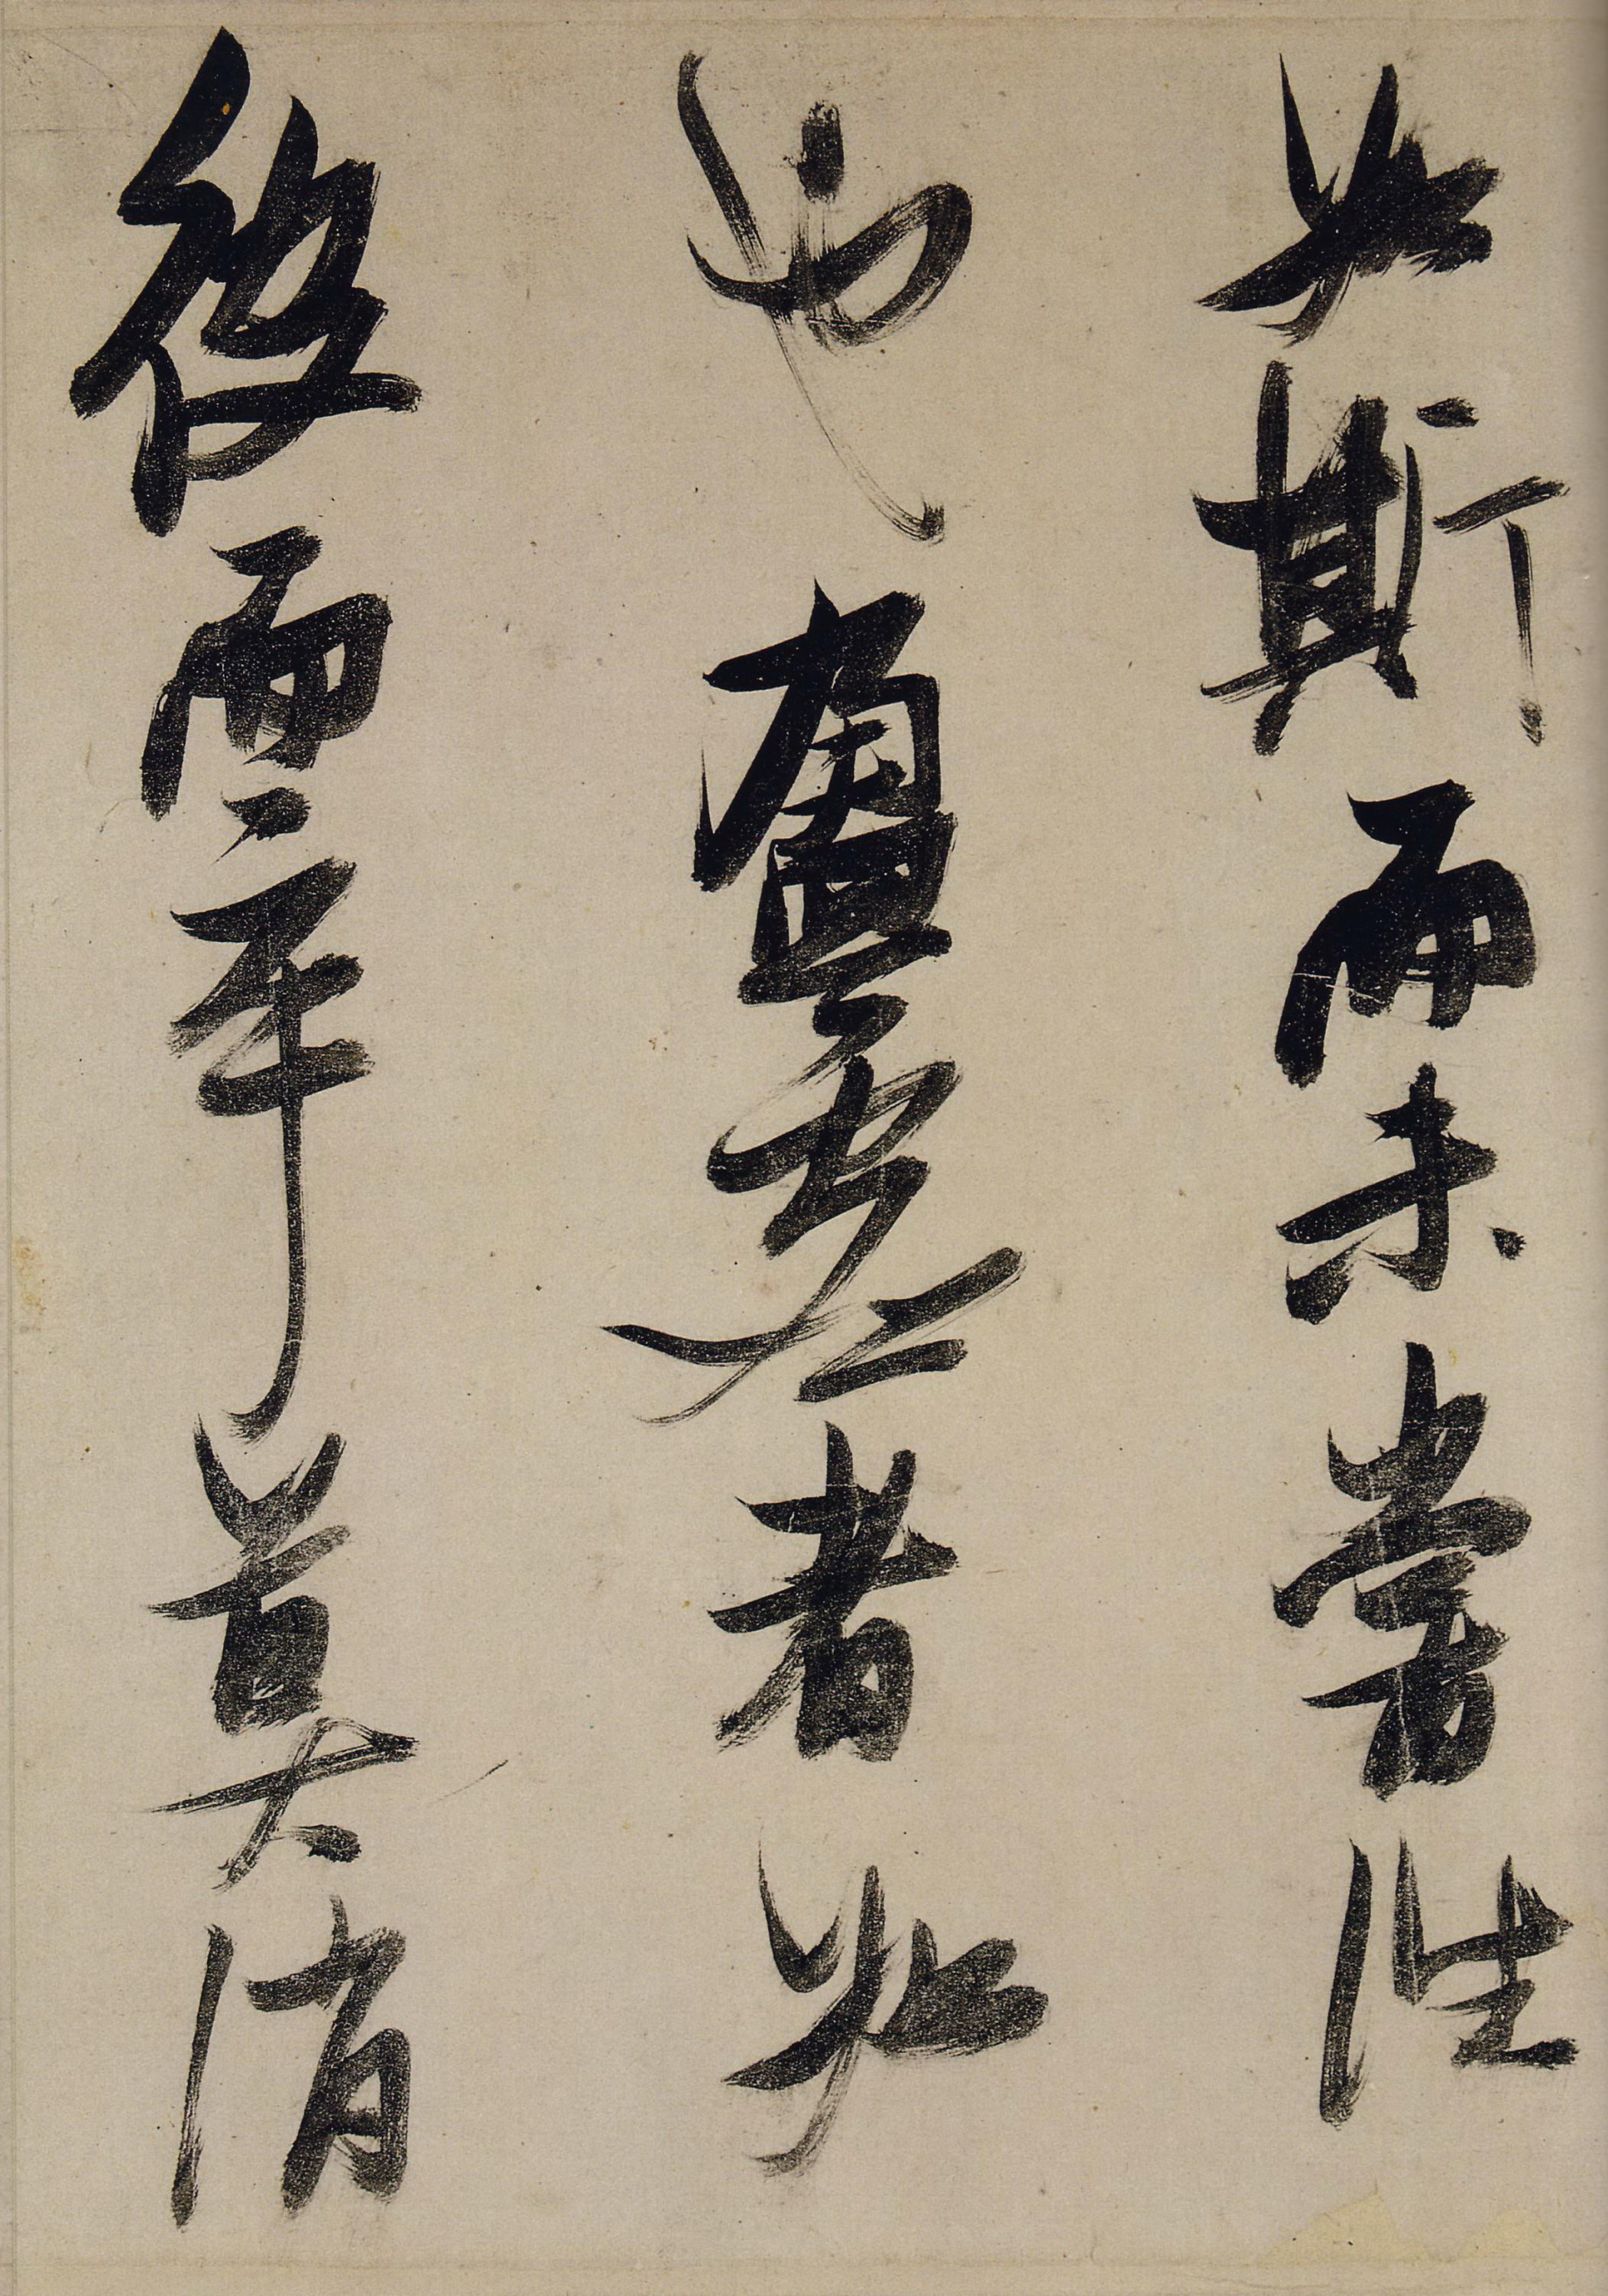 如斯而未嘗往
也盈虛者如
彼而卒莫消